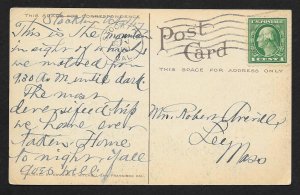 THIS SPACE FOR CORRESPONDENCE
This is the mountain
in sight of which
we motored for
9.30 A.M. until dark.
The most
diversified trip
we have ever
taken. Home
to night if all
goes well
Post
Card
THIS SPACE FOR ADDRESS ONLY
1 CENT 1
Mrs. Robert
Lee
Mass